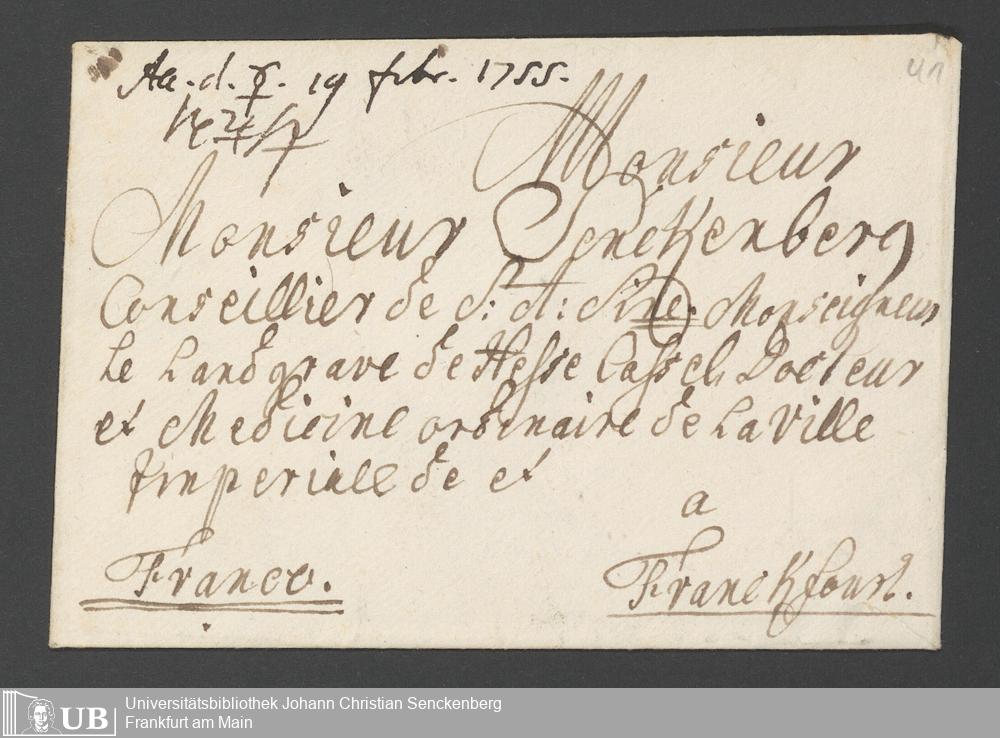 d. ☿. 19 febr. 1755.
41
Monsieur
Monsieur Senckenberg
Conseillier de S: A: Sme. Monseigneur
Le Landgrave de Hesse Cassel, Docteur
et Medicine ordinaire de La Ville
Imperiale de et
a
Franco.
Franckfourt.
UB
Universitätsbibliothek Johann Christian Senckenberg
Frankfurt am Main